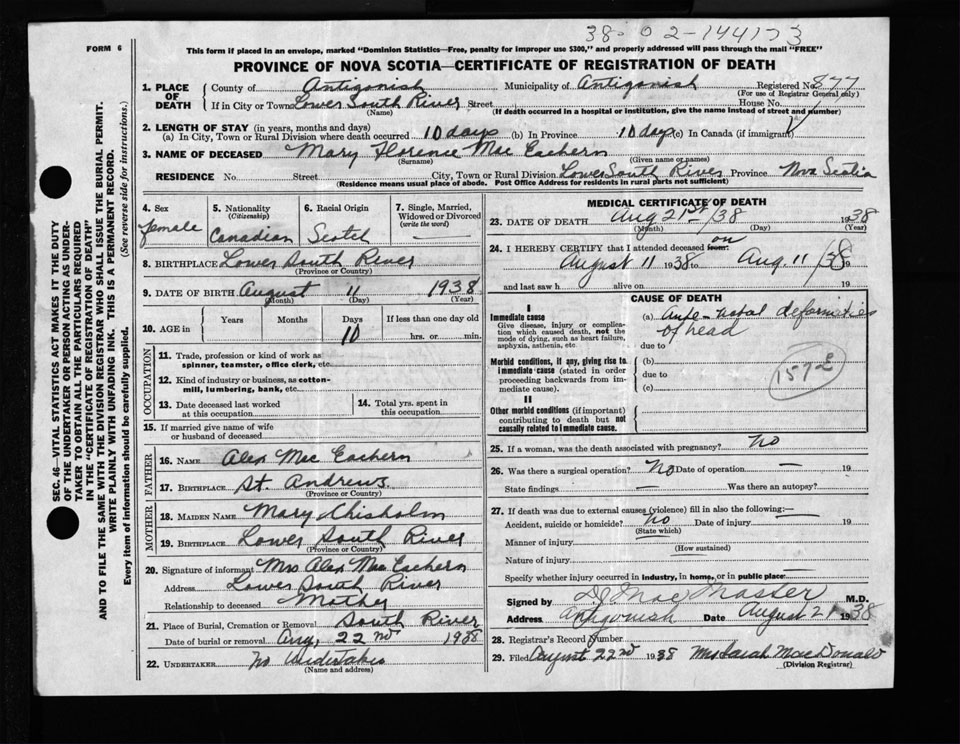 38-02-144173
FORM 6
This form if placed in an envelope, marked "Dominion Statistics—Free, penalty for improper use $300," and properly addressed will pass through the mail "FREE"
PROVINCE OF NOVA SCOTIA—CERTIFICATE OF REGISTRATION OF DEATH
SEC. 46—VITAL STATISTICS ACT MAKES IT THE DUTY
OF THE UNDERTAKER OR PERSON ACTING AS UNDER-
TAKER TO OBTAIN ALL THE PARTICULARS REQUIRED
IN THE "CERTIFICATE OF REGISTRATION OF DEATH"
AND TO FILE THE SAME WITH THE DIVISION REGISTRAR WHO SHALL ISSUE THE BURIAL PERMIT.
WRITE PLAINLY WITH UNFADING INK. THIS IS A PERMANENT RECORD.
Every item of information should be carefully supplied. (See reverse side for instructions.)
1. PLACE OF DEATH County of Antigonish Municipality of Antigonish Registered No. 877
(For use of Registrar General only)
If in City or Town Lower South River Street House No.
(Name) (If death occurred in a hospital or institution, give the name instead of street and number)
2. LENGTH OF STAY (in years, months and days)
(a) In City, Town or Rural Division where death occurred 10 days (b) In Province 10 days (c) In Canada (if immigrant)
3. NAME OF DECEASED Mary Florence Mac Eachern
(Surname) (Given name or names)
RESIDENCE No. Street City, Town or Rural Division Lower South River Province Nova Scotia
(Residence means usual place of abode. Post Office Address for residents in rural parts not sufficient)
4. Sex female
5. Nationality (Citizenship) Canadian
6. Racial Origin Scotch
7. Single, Married, Widowed or Divorced (write the word) —
8. BIRTHPLACE Lower South River
(Province or Country)
9. DATE OF BIRTH August 11 1938
(Month) (Day) (Year)
10. AGE in Years Months Days 10 If less than one day old hrs. or min.
OCCUPATION
11. Trade, profession or kind of work as
spinner, teamster, office clerk, etc.
12. Kind of industry or business, as cotton-
mill, lumbering, bank, etc.
13. Date deceased last worked
at this occupation
14. Total yrs. spent in
this occupation
15. If married give name of wife
or husband of deceased
FATHER
16. NAME Alex Mac Eachern
17. BIRTHPLACE St. Andrews
(Province or Country)
MOTHER
18. MAIDEN NAME Mary Chisholm
19. BIRTHPLACE Lower South River
(Province or Country)
20. Signature of informant Mrs Alex Mac Eachern
Address Lower South River
Relationship to deceased Mother
21. Place of Burial, Cremation or Removal South River
Date of burial or removal Aug, 22nd 1938
22. UNDERTAKER No
(Name and address)
MEDICAL CERTIFICATE OF DEATH
23. DATE OF DEATH Aug 21st /38 1938
(Month) (Day) (Year)
24. I HEREBY CERTIFY that I attended deceased from on
August 11 1938 to Aug. 11 /38 19
and last saw h alive on 19
CAUSE OF DEATH
I
Immediate cause
Give disease, injury or complica-
tion which caused death, not the
mode of dying, such as heart failure,
asphyxia, asthenia, etc.
(a) Ante-natal deformities
of head
due to
Morbid conditions, if any, giving rise to
immediate cause (stated in order
proceeding backwards from im-
mediate cause).
(b)
due to
(c)
II
Other morbid conditions (if important)
contributing to death but not
causally related to immediate cause.
25. If a woman, was the death associated with pregnancy? No
26. Was there a surgical operation? No Date of operation — 19
State findings — Was there an autopsy?
27. If death was due to external causes (violence) fill in also the following:—
Accident, suicide or homicide? No Date of injury 19
(State which)
Manner of injury
(How sustained)
Nature of injury
Specify whether injury occurred in industry, in home, or in public place —
Signed by M.D.
Address Antigonish Date August 21 1938
28. Registrar's Record Number
29. Filed August 22nd 1938 Mrs Sarah MacDonald
(Division Registrar)